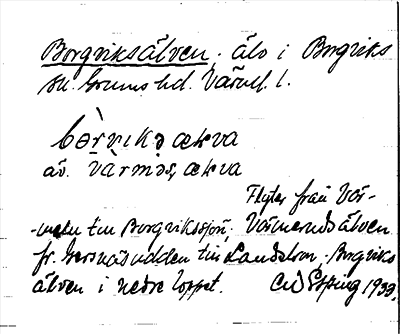 Borgviksälven, älv i Borgviks
sn. Grums hd. Värml. l.
bòrviksækva
äv. värmlsækva
Flyter från Vär-
-meln till Borgvikssjön, Värmelnsälven
fr. udden till . Borgviks
älven i nedre loppet. 1933.